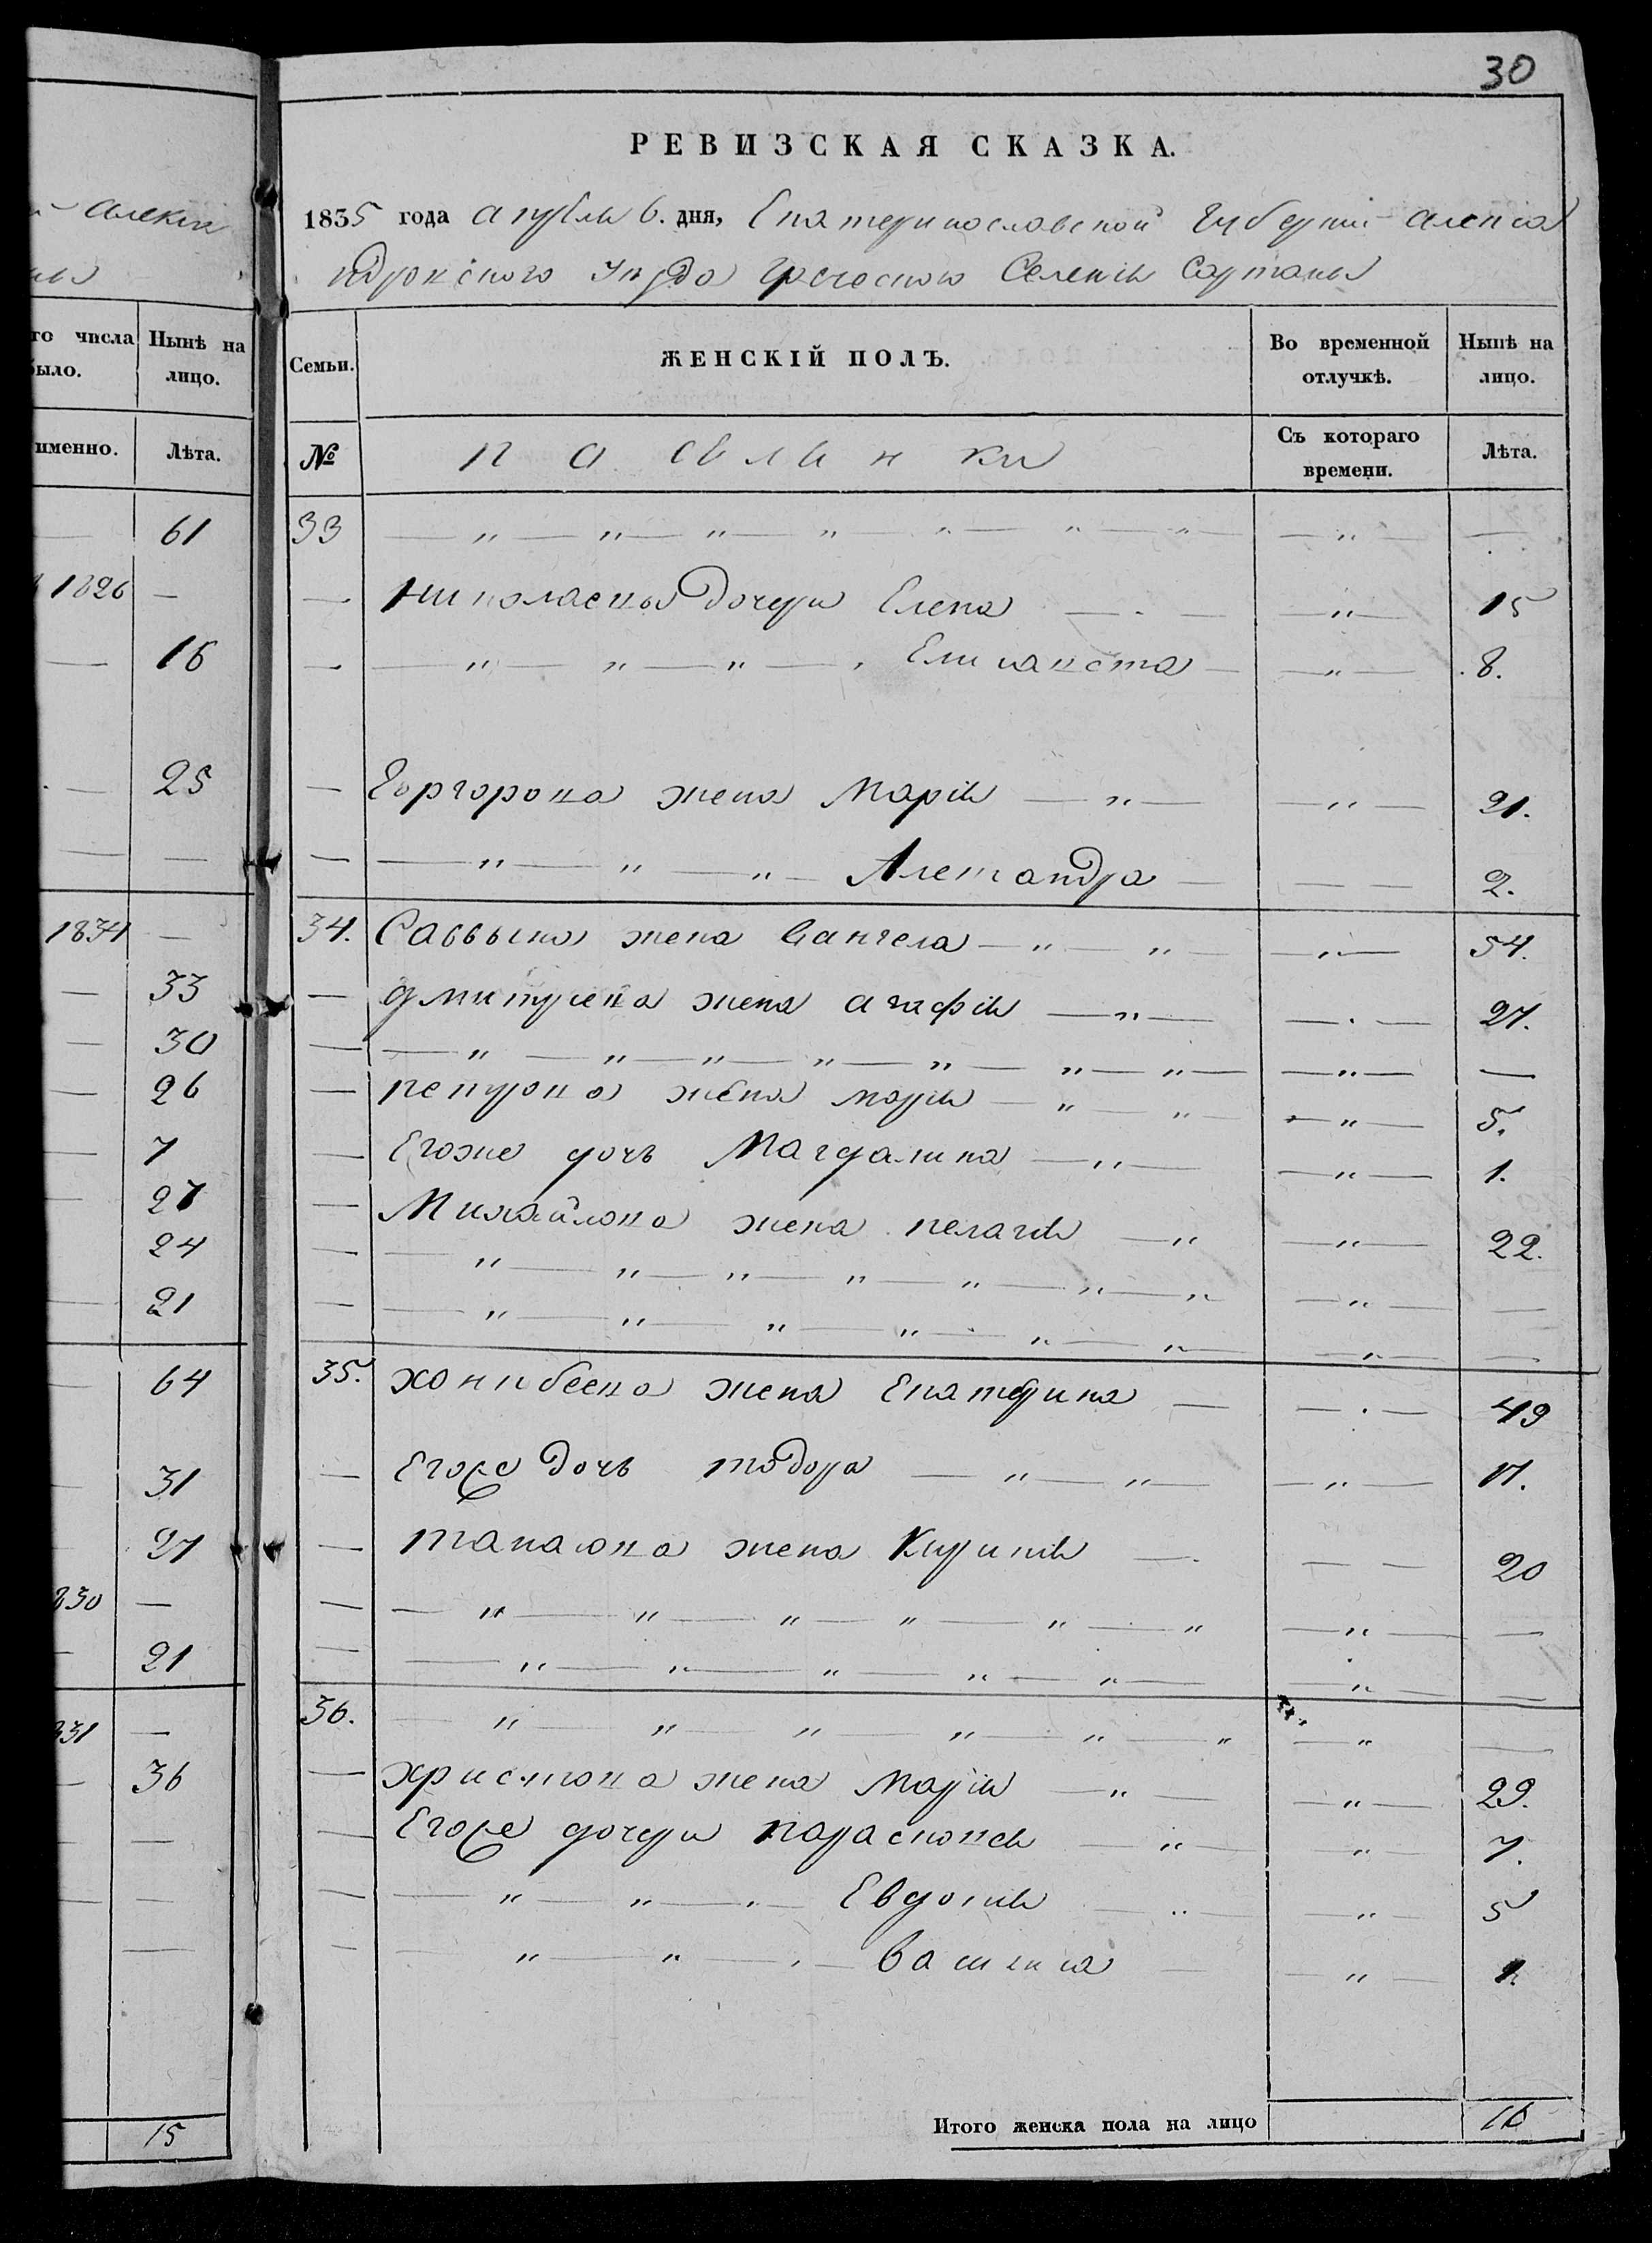 30
РЕВИЗСКАЯ СКАЗКА.
1835 года апреля 6. дня, Екатеринославской Губернии Алекса
ндровского Уезда Греческого Селения Сартаны
Семьи. ЖЕНСКІЙ ПОЛЪ. Во временной отлучкѣ. Нынѣ на лицо.
№ Поселянки Съ котораго времени. Лѣта.
33 — " — " — " — " — " — " — " — — " — —
— Николаевы дочери Елена — — " — 15
— — " — " — " — Елисавета — — " — 8.
— Григорова жена Мария — " — — " — 21.
— — " — " — " — Александра — — — 2.
34. Саввына жена Вангела — " — " — — " — 54.
— Дмитриева жена агафия — " — — . — 27.
— — " — " — " — " — " — " — " — — " — —
— петрова жена мария — " — " — — " — 5.
— Егоже дочь Магдалина — " — — " — 1.
— Михайлова жена пелагия — " — " — 22.
— — " — " — " — " — " — " — " — " — —
— — " — " — " — " — " — " — " — —
35. хонибеева жена Екатерина — — . — 49
— Егоже дочь тодора — " — " — — " — 17.
— жена — — — 20
— — " — " — " — " — " — " — " — —
— — " — " — " — " — " — — " — —
36. — " — " — " — " — " — " — " — —
— христова жена Мария — " — — " — 29.
— Егоже дочери параскокия — " — — " — 7.
— — " — " — " — Евдокия — " — — " — 5
— — " — " — " — Василиса — — " — 1.
Итого женска пола на лицо 16
го числа было. Нынѣ на лицо.
именно. Лѣта.
— 61
1826 —
— 16
— 25
— —
1834 —
— 33
— 30
— 26
— 7
— 27
24
— 21
— 64
— 31
27
830 —
— 21
831 —
— 36
— —
— —
—
15